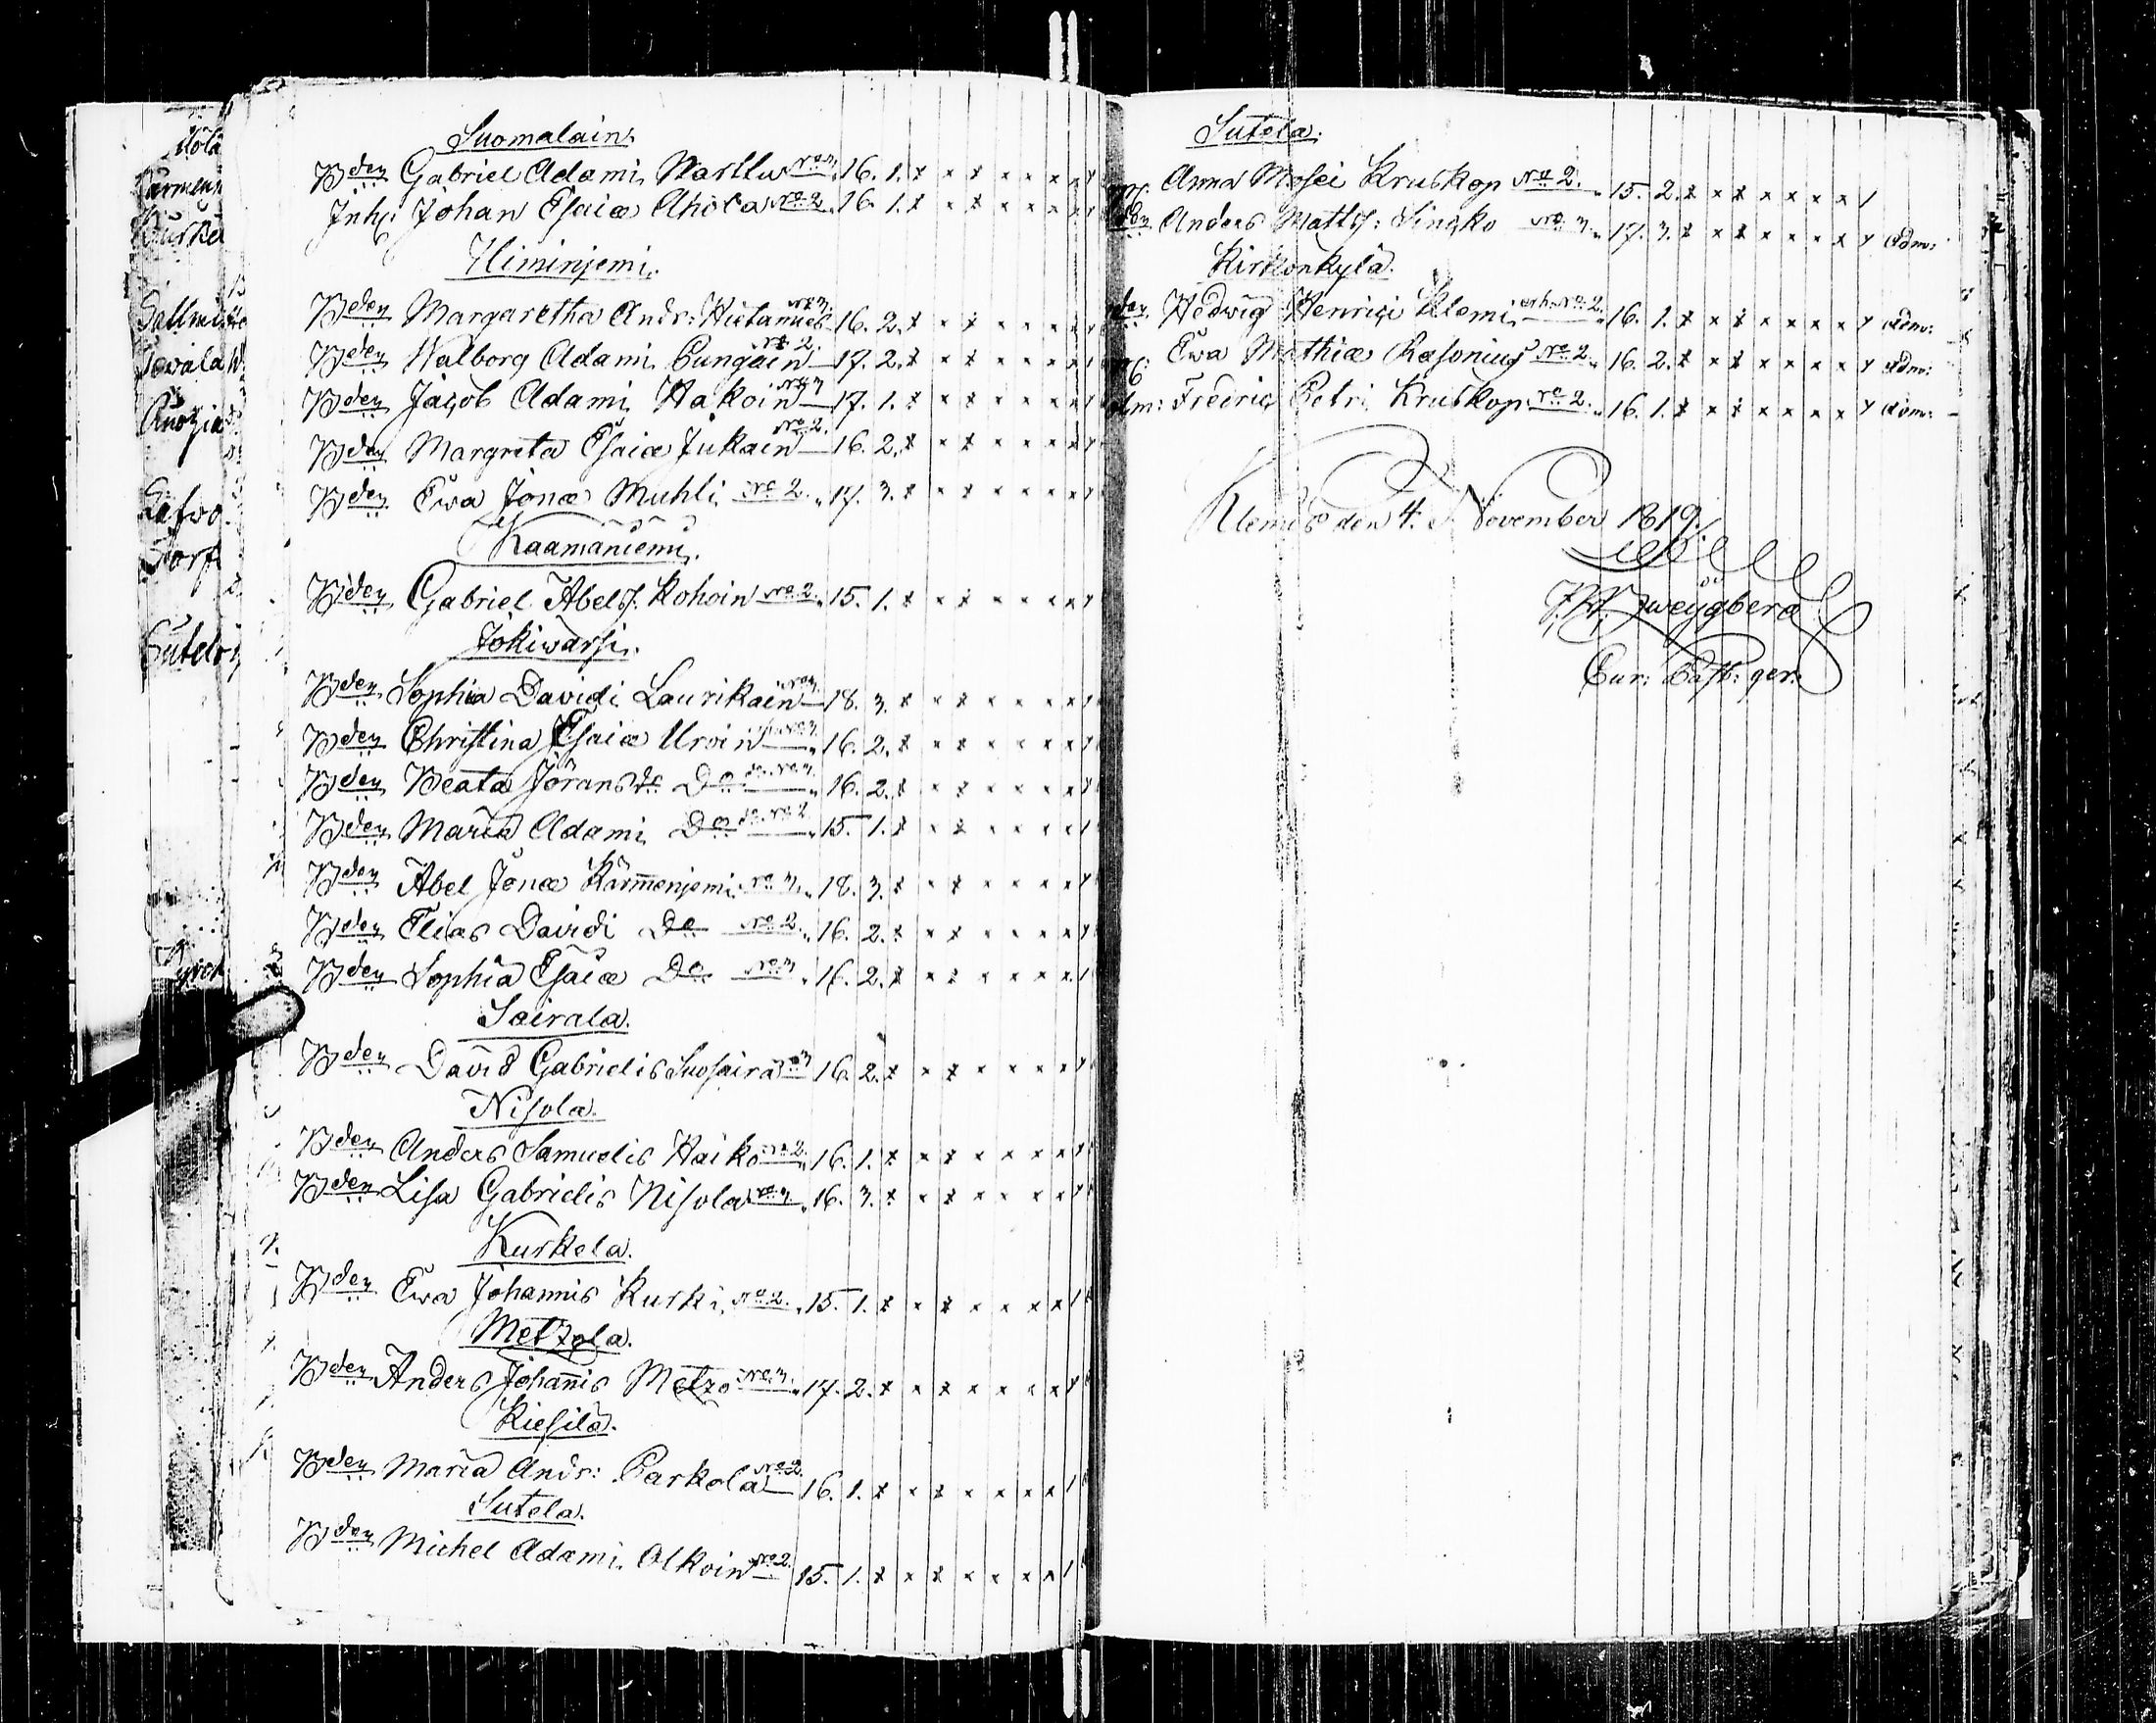 Suomalain.
Bden Gabriel Adami Marttu No 3. 16. 1. x x x x x x x
Inh: Johan Esaiæ Ahola No 2. 16. 1. x x x x x x x
Himinjemi.
Bden Margaretha Andr: Hietamies No 3. 16. 2. x x x x x x x
Bden Walborg Adami Pungain No 2. 17. 2. x x x x x x x
Bden Jacob Adami Hakoin No 3 17. 1. x x x x x x x
Bden Margreta Esaiæ Jukain No 2. 16. 2. x x x x x x x
Bden Ewa Jonæ Muhli No 2. 17. 3. x x x x x x x
Kaamaniemi.
Bden Gabriel Abels: Kohoin No 2. 15. 1. x x x x x x x
Jokiwarsi.
Bden Sophia Davidi Laurikain No 3. 18. 3. x x x x x x x
Bden Christina Esaiæ Uroin No 3. 16. 2. x x x x x x x
Bden Beata Jöransdr Do do No 3. 16. 2. x x x x x x x
Bden Maria Adami Do do No 2. 15. 1. x x x x x x x
Bden Abel Jonæ Kärmenjemi No 3. 18. 3. x x x x x x x
Bden Elias Davidi Do No 2. 16. 2. x x x x x x x
Bden Sophia Esaiæ Do No 3. 16. 2. x x x x x x x
Sairala.
Bden David Gabrielis Suosaira No 3 16. 2. x x x x x x x
Nisola.
Bden Anders Samuelis Haiko No 2. 16. 1. x x x x x x x
Bden Lisa Gabrielis Nisola No 3. 16. 3. x x x x x x x
Kurkela.
Bden Ewa Johannis Kurki No 2. 15. 1. x x x x x x x
Metzola.
Bden Anders Johan̄is Metzo No 3. 17. 2. x x x x x x x
Kiesilä.
Bden Maria Andr: Parkola No 2. 16. 1. x x x x x x x
Sutela.
Bden Michel Adami Olkoin No 2. 15. 1. x x x x x x x
Sutela.
Anna Mosei Kruskop No 2. 15. 2. x x x x x x x
Anders Matts: Singko No 3. 17. 3. x x x x x x x Adm:
Kirkonkylä.
Hedwig Henrici Klemi No 2. 16. 1. x x x x x x x Adm:
Ewa Mathiæ Kasonius No 2. 16. 2. x x x x x x x Adm:
Fredric Petri Kruskop No 2. 16. 1. x x x x x x x Adm:
Klemis den 4. November 1819.
Zweygberg
Cur: Past: ger: